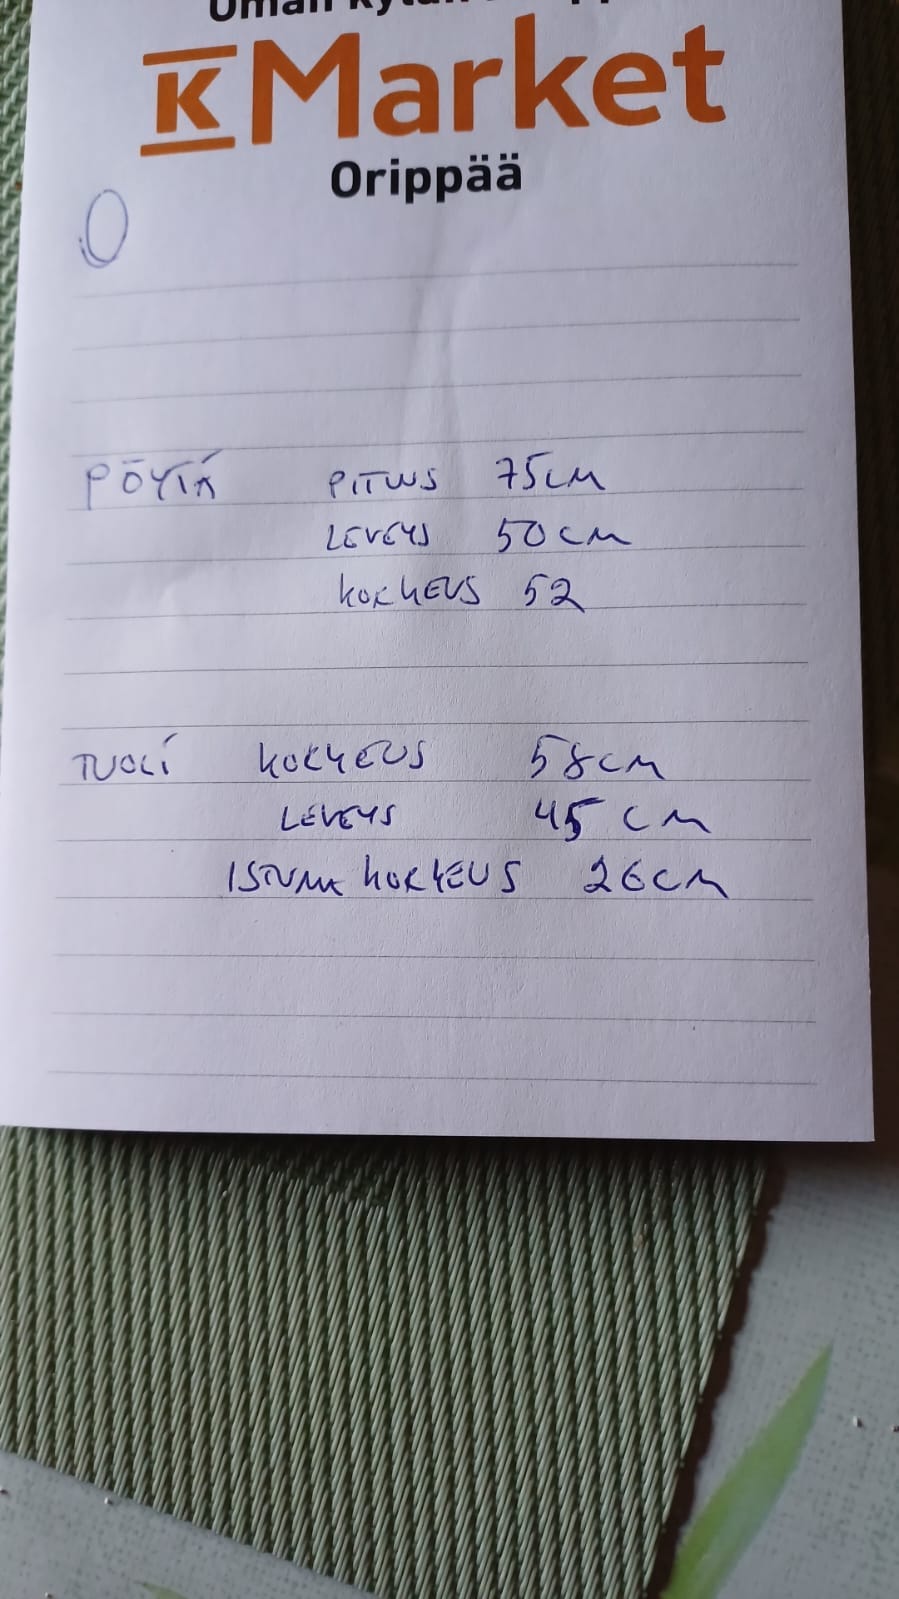 Oman kylän
K Market
Orippää
PÖYTÄ PITUUS 75CM
LEVEYS 50CM
KORKEUS 52
TUOLI KORKEUS 58CM
LEVEYS 45 CM
ISTUMA KORKEUS 26CM